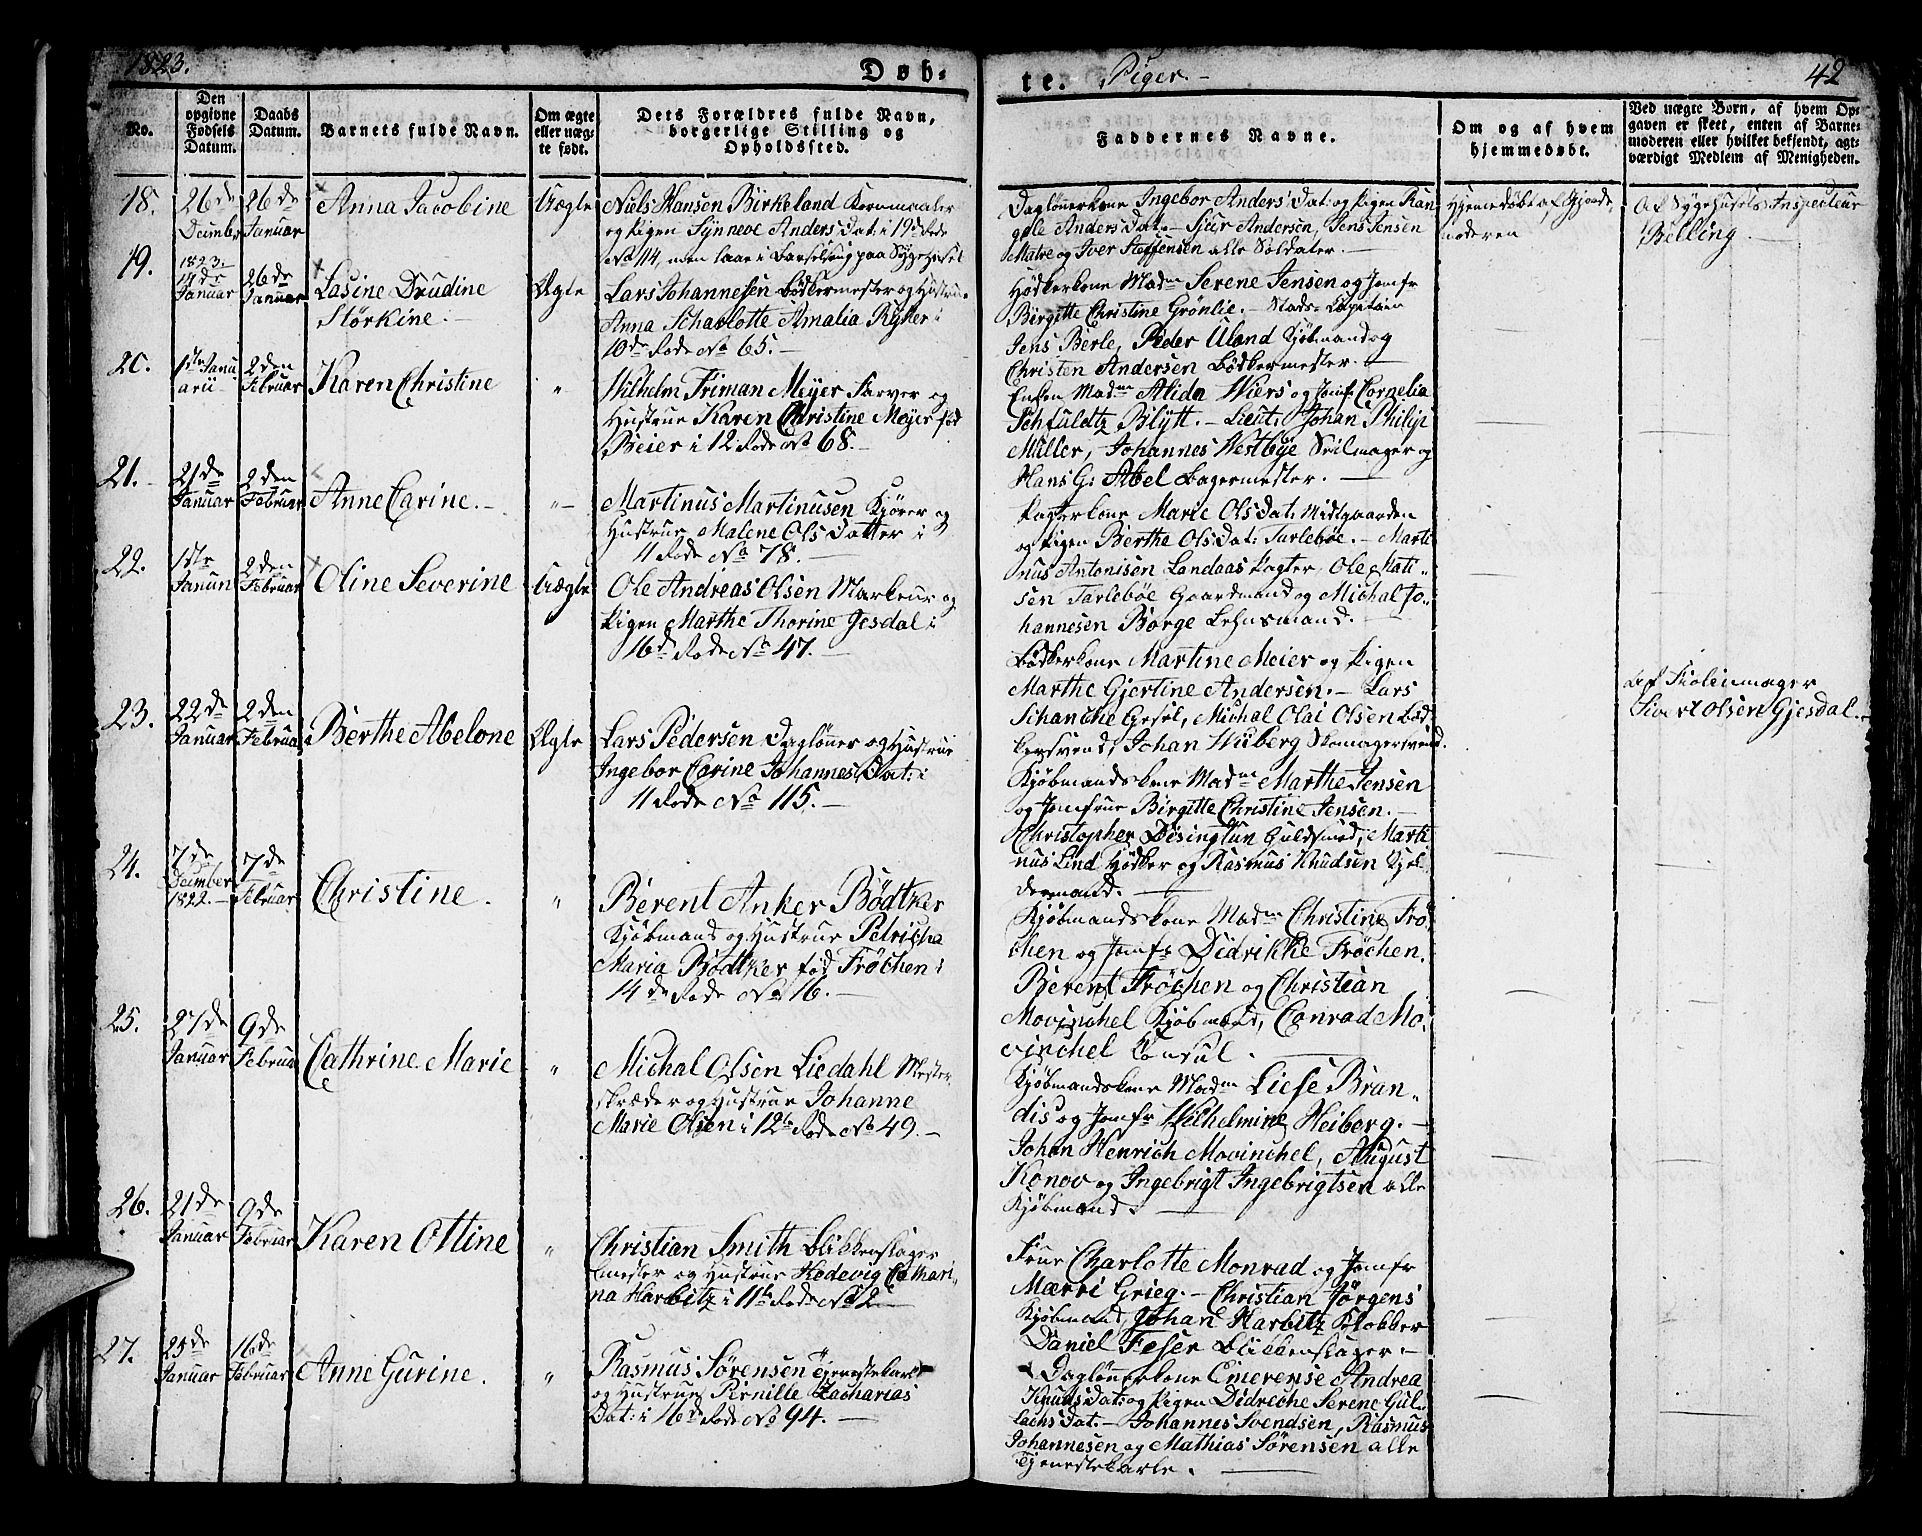 1823.
Døb-
te. Piger.-
42
No.
Den opgivne Fødsels Datum.
Daabs Datum.
Barnets fulde Navn.
Om ægte eller uægte født.
Dets Forældres fulde Navn, borgerlige Stilling og Opholdssted.
Faddernes Navne.
Om og af hvem hjemmedøbt.
Ved uægte Børn, af hvem Opgaven er skeet, enten af Barnemoderen eller hvilket bekjendt, agtværdigt Medlem af Menigheden.
18. 26de December 26de Januar Anna Jacobine Uægte
Niels Hansen Birkeland Kornmaaler
og Pigen Synneve Anders Dat: i 19de Rode
No 114, men laae i Barselseng paa Sygehuset
Daglönerkone Ingebor Anders Dat: og Pigen Ran-
gele Anders Dat.- Siur Andersen, Jens Jensen
Matre og Iver Steffensen alle Soldater.-
Hjemedöbt af Gjorde-
moderen
Af Sygehusets Inspecteur
Belling.
19. 1823. 14de Januar 26de Januar Lasine Drudine Störkine.- Ægte
Lars Johannesen Bödkermester og Hustrue
Anna Scharlotte Amalia Ryker i
10de Rode No 65.-
Hödkerkone Madme Serene Jensen og Jomfr
Birgitte Christine Grönlie.- Stads-Capitain
Jens Berle, Peder Uland Kjöbmand og
Christen Andersen Bödkermester.-
20. 1ste Janu arii 2den Februar Karen Christine "
Wilhelm Friman Meyer Farver og
Hustrue Karen Christine Meyer föd
Beier i 12 Rode No 68.-
Enken Madme Alida Wiers og Jomf: Cornelia
Schfuldtz Blÿtt.- Lieut: Johan Philip
Müller, Johannes Westbÿe Seilmager og
Hans G: Abel Bagermester.-
21. 21de Januar 2den Februar Anne Carine.- "
Martinus Martinusen Kjörer og
Hustrue Malene Ols Datter i
11 Rode No 78.-
Pagterkone Marie Ols Dat: Midtgaarden
og Pigen Berthe Ols Dat: Tarleböe.- Marti-
nus Antonisen Landaas Pagter, Ole Mati-
sen Tarleböe Gaardmand og Michal Jo-
hannesen Borge Lehnsmand.-
22. 1ste Januari 2den Februar Oline Severine Uægte
Ole Andreas Olsen Markeur og
Pigen Marthe Thorine Gesdal i
16de Rode No 47.-
Bödkerkone Martine Meier og Pigen
Marthe Gjertine Andersen.- Lars
Schanche Gesel, Michal Olai Olsen Böd-
kersvend, Johan Wiiberg Skomagersvend.
Af Fiolinmager
Sivert Olsen Gjesdal.-
23. 22de Januar 2den Februar Berthe Abelone Ægte
Lars Pedersen Daglöner og Hustrue
Ingebor Carine Johannes Dat: i
11 Rode No 115.-
Kjöbmandskone Madme Marthe Jensen
og Jomfrue Birgitte Christine Jensen.-
Christopher Dösingtun Guldsmed, Marti-
nus Lind Hödker og Rasmus Knudsen Kjel-
dermand.
24. 7de December 1822.- 7de Februar Christine. "
Berent Anker Bödtker
Kjöbmand og Hustrue Petricha
Maria Bödtker föd Fröchen i
14de Rode No 16.-
Kjöbmandskone Madme Christine Frö-
chen og Jomfr Didrikke Fröchen.
Berent Fröchen og Christian
Movinchel Kjöbmænd, Conrad Mo-
vinchel Konsul.
25. 27de Januar 9de Februar Cathrine Marie "
Michal Olsen Liedahl Mester-
skræder og Hustrue Johanne
Marie Olsen i 12te Rode No 49.-
Kjöbmandskone Madme Liese Bran-
dis og Jomfr Wilhelmine Heiberg.-
Johan Henrich Movinchel, August
Konov og Ingebrigt Ingebrigtsen alle
Kjöbmænd.
26. 21de Januar 9de Februar Karen Ottine "
Christian Smith Blikkenslager
mester og Hustrue Hedevig Cathari-
na Harbitz i 11te Rode No 2.-
Frue Charlotte Monrad og Jomfr
Mærri Grieg.- Christian Jörgens
Kjöbmand, Johan Harbitz Klokker
Daniel Feser Blikkenslager.-
27. 25de Januar 16de Februar Anne Gurine. "
Rasmus Sörensen Tjenestekarl
og Hustrue Pirnille Zacharias
Dat: i 16de Rode No 94.-
Daglönerkone Emerense Andrea
Knuds Dat: og Pigen Didreche Serene Gul-
lachs Dat.- Johannes Svendsen, Rasmus
Johannesen og Mathias Sörensen alle
Tjenestekarle.